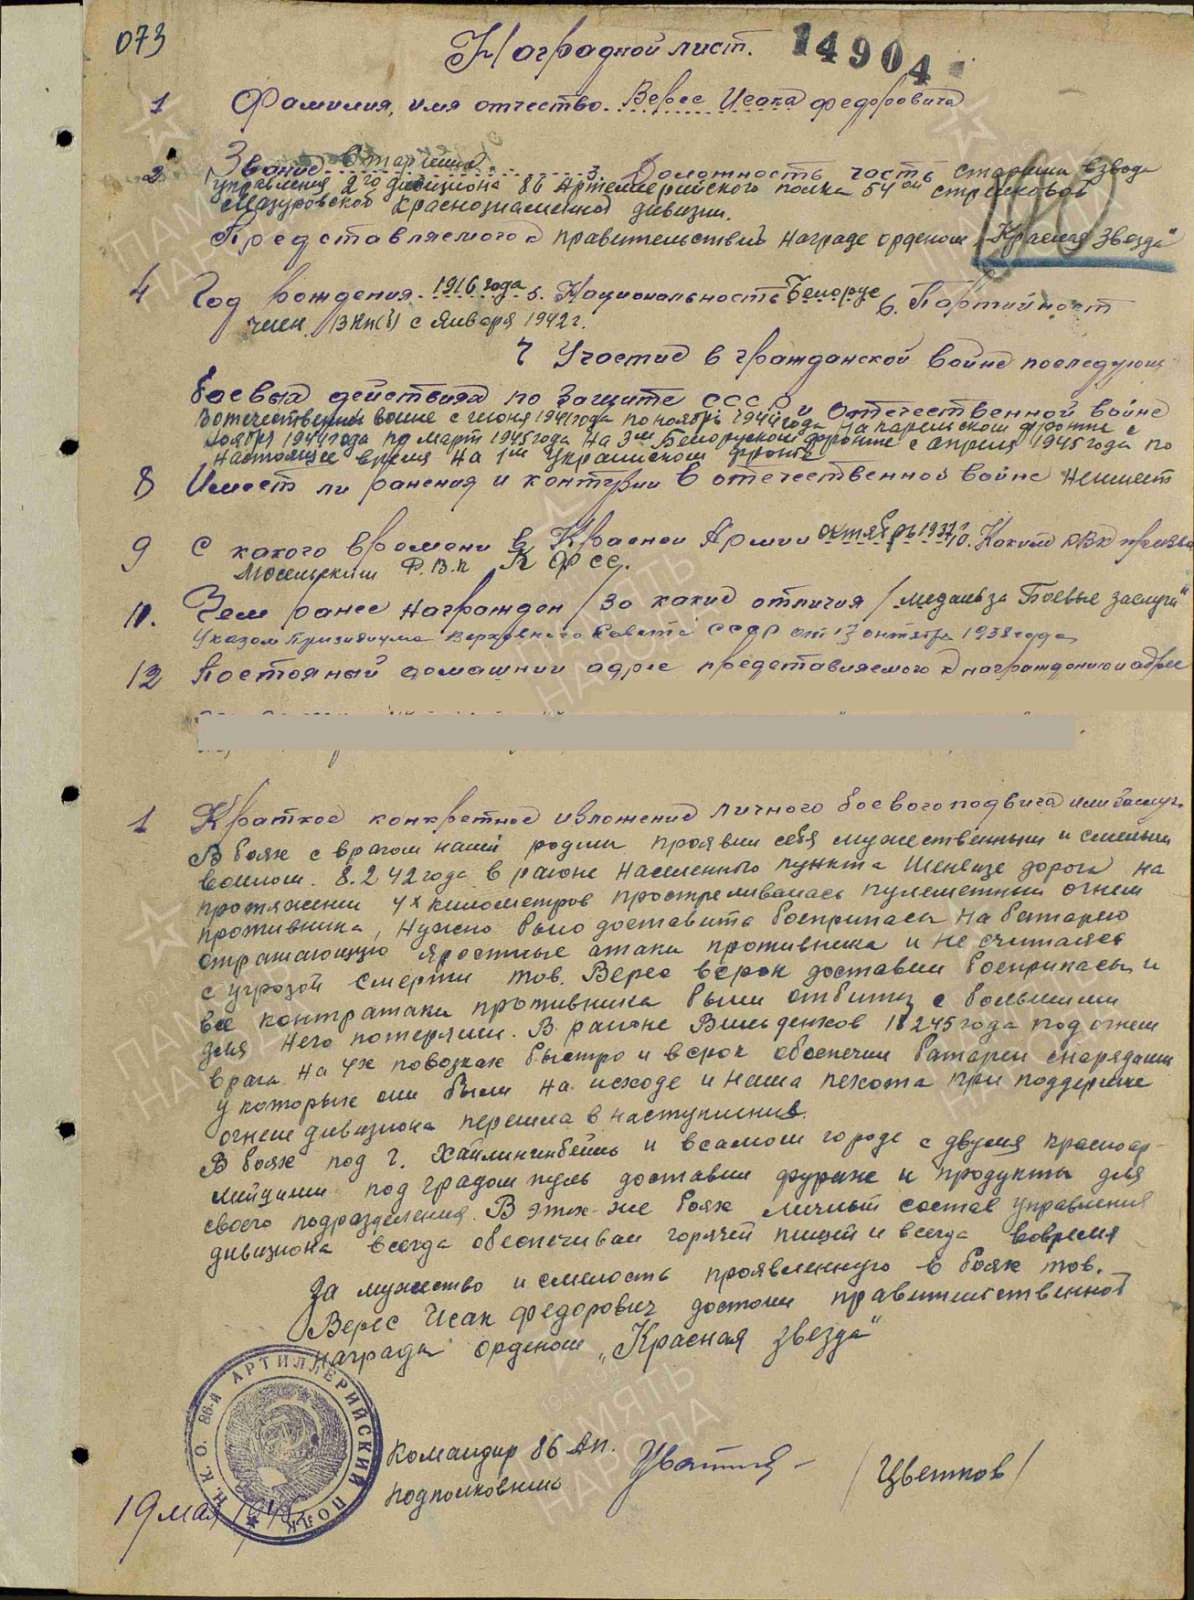 073
Наградной лист. 14904
1 Фамилия, имя отчество. Верес Исака Федоровича
2 Звание Старшина 3. Должность часть старшина взвода
управления 2го дивизиона 86 Артиллерийского полка 54ой стрелковой
Мазуровской Краснознаменной дивизии.
Представляемого к правительствен. награде орденом „Красная Звезда"
4 Год рождения 1916 года 5. Национальность Белорус 6. Партийност
член ВКП(б) с Января 1942 г.
7 Участие в гражданской войне последующ
боевых действиях по защите СССР и отечественной войне
В отечественной войне с июня 1941 года по ноябрь 1944 года на карельском фронте с
ноября 1944 года по март 1945 года на 3ем Белоруском фронте с апреля 1945 года по
настоящее время на 1ом Украинском фронте
8 Имеет ли ранения и контузии в отечественной войне не имеет
9 С какого времени в Красной Армии октябрь 1937 г. 10. Каким РВК призва
Р.В.К
11. Чем ранее награжден /за какие отличия/ медаль за Боевые заслуги"
Указом Призидиума Верховного Совета СССР от 17 октября 1938 года
12 Постояный домашний адрес представляемого к награждению и адрес
1 Краткое конкретное изложение личного боевого подвига или заслуг.
В боях с врагом нашей родины проявил себя мужественным и смелым
воином. 8.2 42 года в районе населенного пункта дорога на
протяжении 4х километров простреливалась пулеметным огнем
противника, нужно было доставить боеприпасы на батарею
отражающую яростные атаки противника и не считаясь
с угрозой смерти тов. Верес в срок доставил боеприпасы и
все контратаки противника были отбиты с большими
для него потерями. В районе 245 года под огнем
врага на 4х повозках быстро и в срок обеспечил батареи снарядами
у которых они были на исходе и наша пехота при поддержке
огнем дивизиона перешла в наступление.
В боях под г. Хайлигинбейль и в самом городе с двумя красноар-
мейцами под градом пуль доставил фураж и продукты для
своего подразделения. В этих же боях личный состав управления
дивизиона всегда обеспечивал горячей пищей и всегда вовремя
За мужество и смелость проявленную в боях тов.
Верес Исак Федорович достоин правительственной
награды орденом „Красная звезда"
Н.К.О. 86-й АРТИЛЛЕРИЙСКИЙ ПОЛК
Командир 86 Ап.
подполковник /Цветков/
19 мая 1945
ПАМЯТЬ НАРОДА